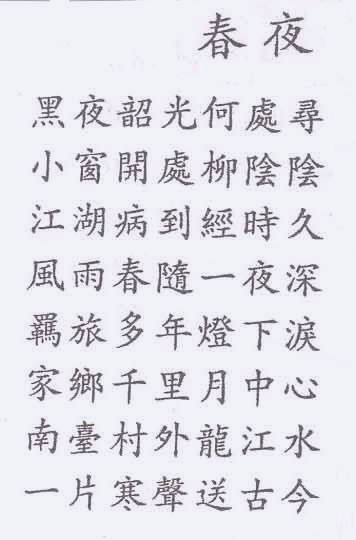 春夜
黑夜韶光何處尋
小窗開處柳陰陰
江湖病到經時久
風雨春隨一夜深
羈旅多年燈下淚
家鄉千里月中心
南臺村外龍江水
一片寒聲送古今